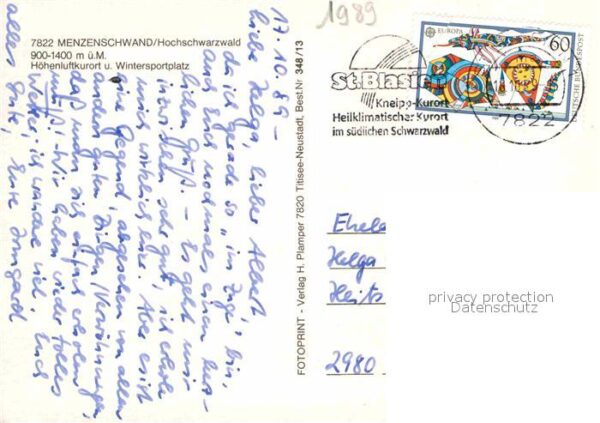 7822 MENZENSCHWAND/Hochschwarzwald
900-1400 m ü.M.
Höhenluftkurort u. Wintersportplatz
17.10.89 –
liebe Helga, lieber Albert,
da ich gerade so „im Zuge" bin,
auch Euch nochmals einen herz-
lichen Gruß – Es geht mir
hier sehr gut, ich erhole
mich wirklich. Aber es ist
eine Gegend, abgesehen von allen
guten Dingen (Verwöhnungen,
daß man sich einfach erholen
muß! Wir haben wieder tolles
Wetter, ich wandere viel. Euch
alles Gute, Eure Irmgard
FOTOPRINT - Verlag H. Plamper 7820 Titisee-Neustadt, Best.Nr 348/13
1989
EUROPA
60
DEUTSCHE BUNDESPOST
St. Blasien
Kneipp-Kurort
Heilklimatischer Kurort
im südlichen Schwarzwald
7822
Ehele
Helga
Heits
2980
privacy protection
Datenschutz